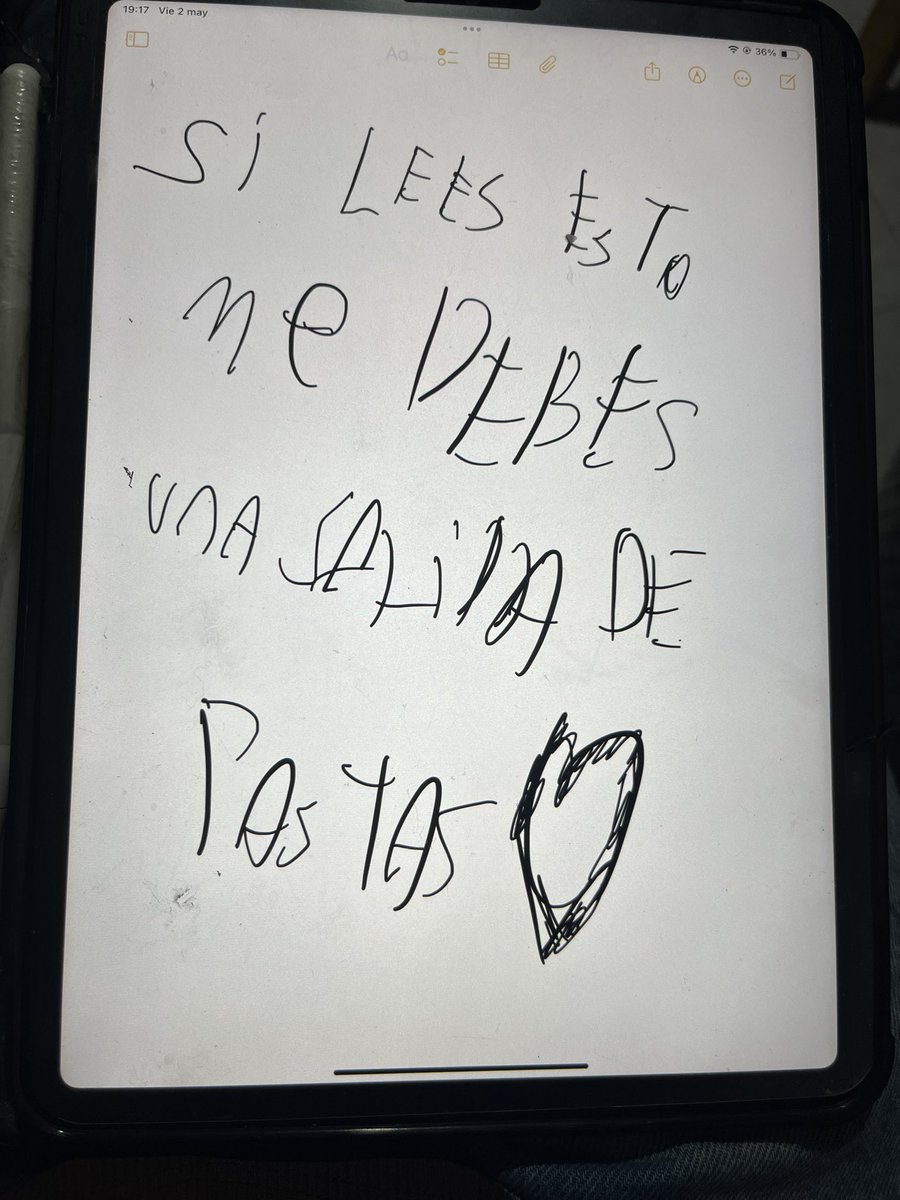 19:17 Vie 2 may
36%
Aa
Si LEES EsTo
me DEBES
UnA SALiDA DE
PAsTAS